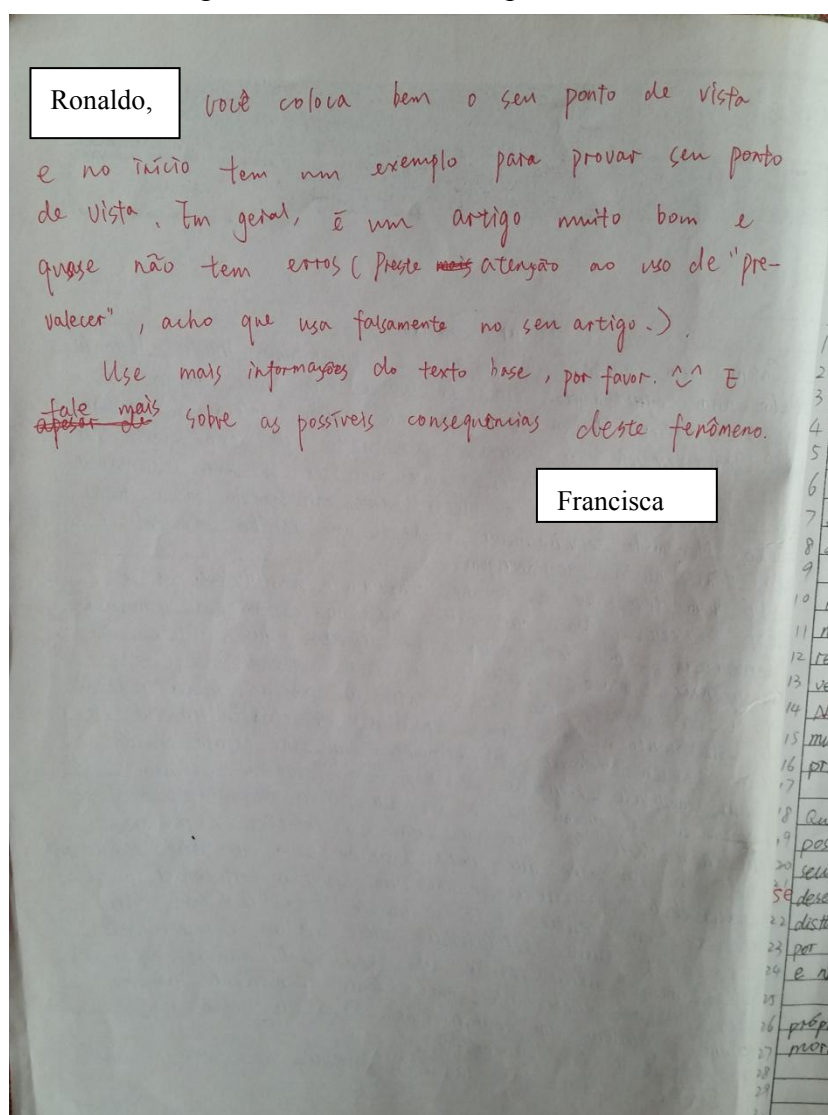 Ronaldo, você coloca bem o seu ponto de vista
e no início tem um exemplo para provar seu ponto
de vista. Em geral, é um artigo muito bom e
quase não tem erros (Preste mais atenção ao uso de "pre-
valecer", acho que usa falsamente no seu artigo.).
Use mais informações do texto base, por favor. ^_^ E
apesar de
fale mais sobre as possíveis consequências deste fenômeno.
Francisca
1
2
3
4
5
6
7
8
9
10
11
12
13
14
15 mu
16 pr
17
18 Qu
19 pos
20 seu
21 se dese
22 dist
23 por
24 e n
25
26 próp
27 mor
28
29